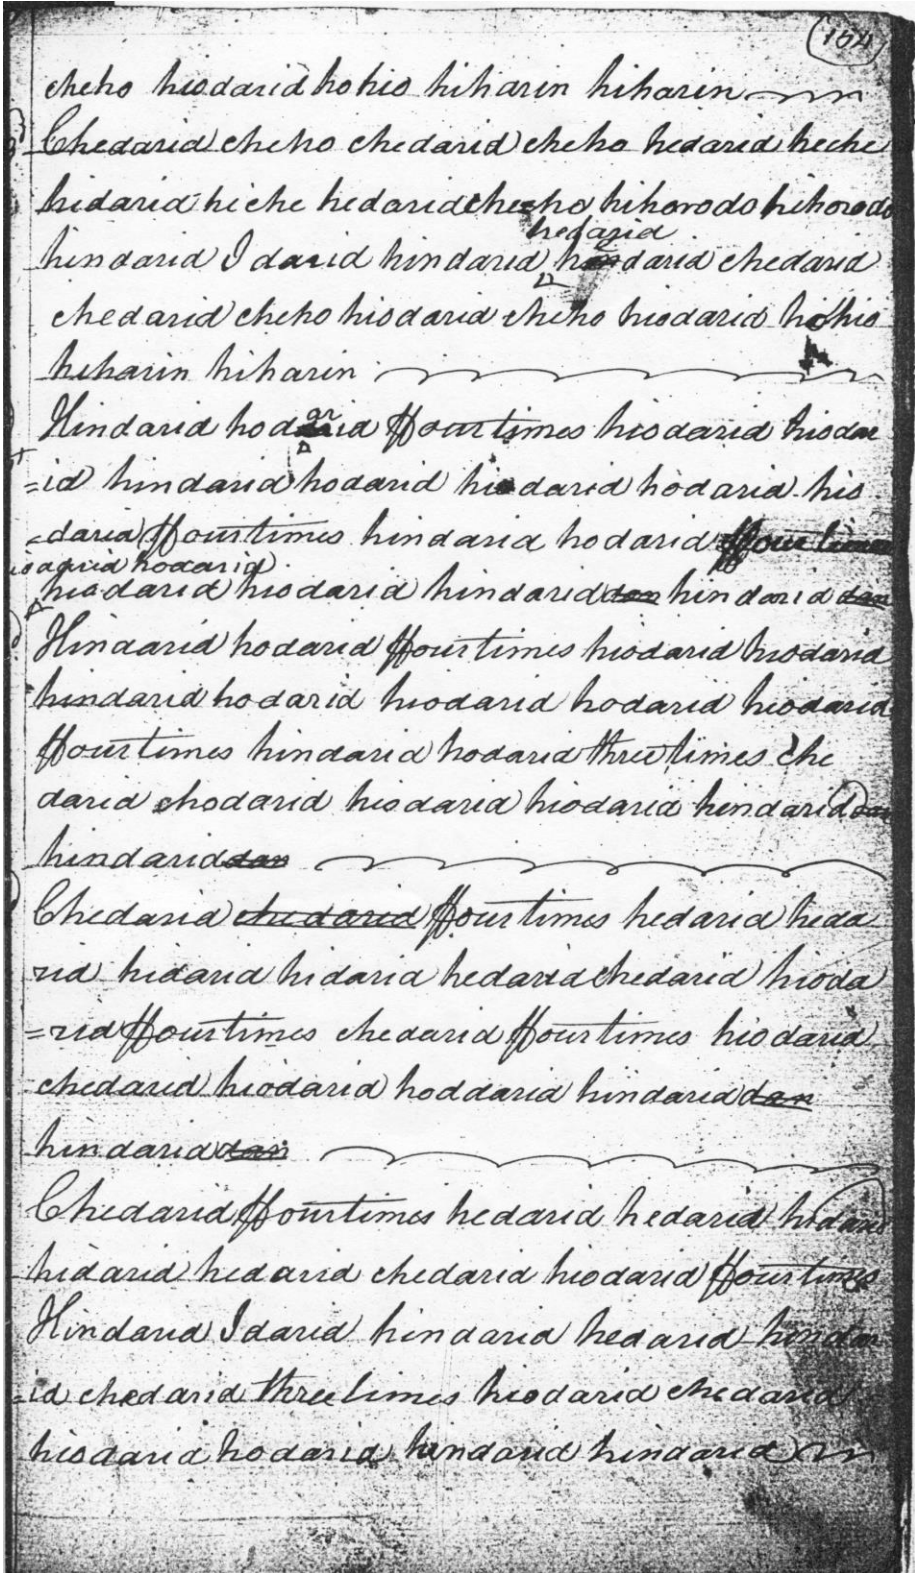 164
cheho hiodarid hohio hiharin hiharin
Chedarid cheho chedarid cheho hedarid heche
hidarid hiche hedarid checho hihorodo hihorodo
hedarid
hindarid I darid hindarid hindarid chedarid
chedarid cheho hiodarid cheho hiodarid hohio
hiharin hiharin
Hindarid hodarid ffourtimes hiodarid hiodar
=id hindarid hodarid hiodarid hodarid hio
=darid ffourtimes hindarid hodarid ffourtimes
iodarid hodarid
hiodarid hiodarid hindarid dan hindarid dan
Hindarid hodarid ffourtimes hiodarid hiodarid
hindarid hodarid hiodarid hodarid hiodarid
ffourtimes hindarid hodarid three times che
darid chodarid hiodarid hiodarid hindarid dan
hindarid dan
Chedarid chedarid ffourtimes hedarid heda
rid hidarid hidarid hedarid chedarid hioda
=rid ffourtimes chedarid ffourtimes hiodarid
chedarid hiodarid hoddarid hindarid dan
hindarid dan
Chedarid ffourtimes hedarid hedarid hodarid
hidarid hedarid chedarid hiodarid ffourtimes
Hindarid I darid hindarid hedarid hindar
=id chedarid three times hiodarid chedarid
hiodarid hodarid hindarid hindarid